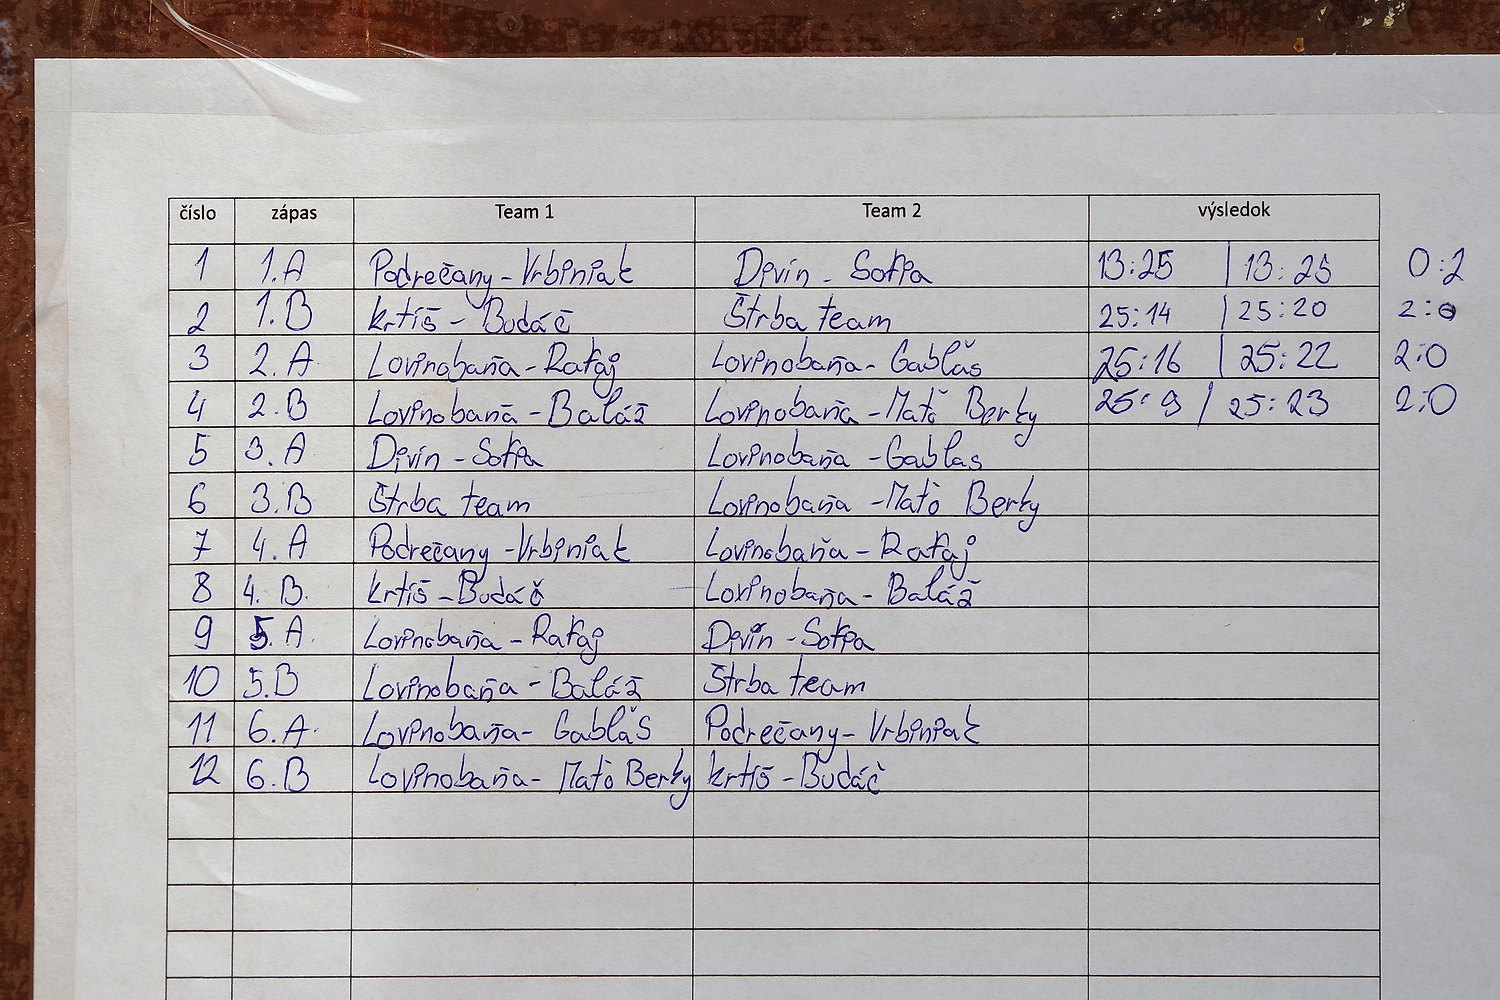 číslo zápas Team 1 Team 2 výsledok
1 1.A Podrečany - Vrbiniak Divín - Soňa 13:25 | 13:25 0:2
2 1.B Krtíš - Budáč Štrba team 25:14 | 25:20 2:0
3 2.A Lovinobaňa - Rataj Lovinobaňa - Gablas 25:16 | 25:22 2:0
4 2.B Lovinobaňa - Baláž Lovinobaňa - Maťo Berky 25:9 | 25:23 2:0
5 3.A Divín - Soňa Lovinobaňa - Gablas
6 3.B Štrba team Lovinobaňa - Maťo Berky
7 4.A Podrečany - Vrbiniak Lovinobaňa - Rataj
8 4.B. Krtíš - Budáč Lovinobaňa - Baláž
9 5.A. Lovinobaňa - Rataj Divín - Soňa
10 5.B Lovinobaňa - Baláž Štrba team
11 6.A. Lovinobaňa - Gablas Podrečany - Vrbiniak
12 6.B Lovinobaňa - Maťo Berky Krtíš - Budáč